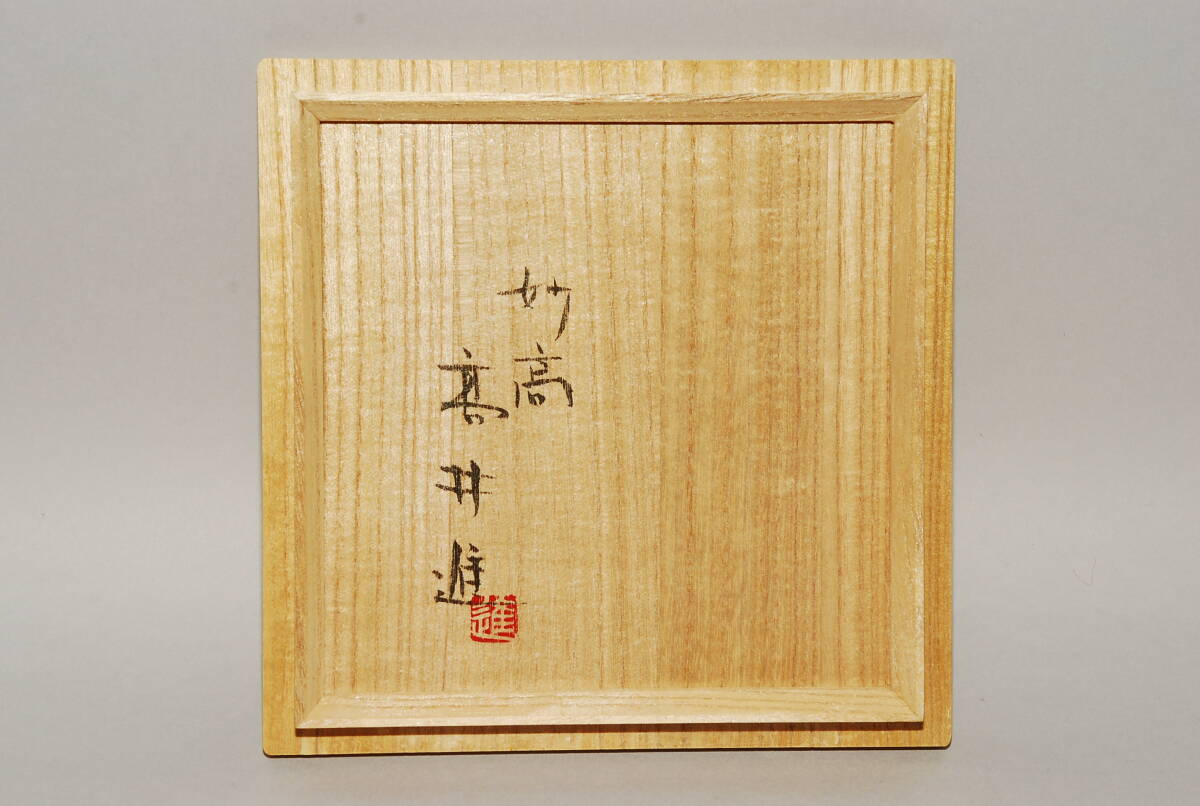 妙高
髙井進
進